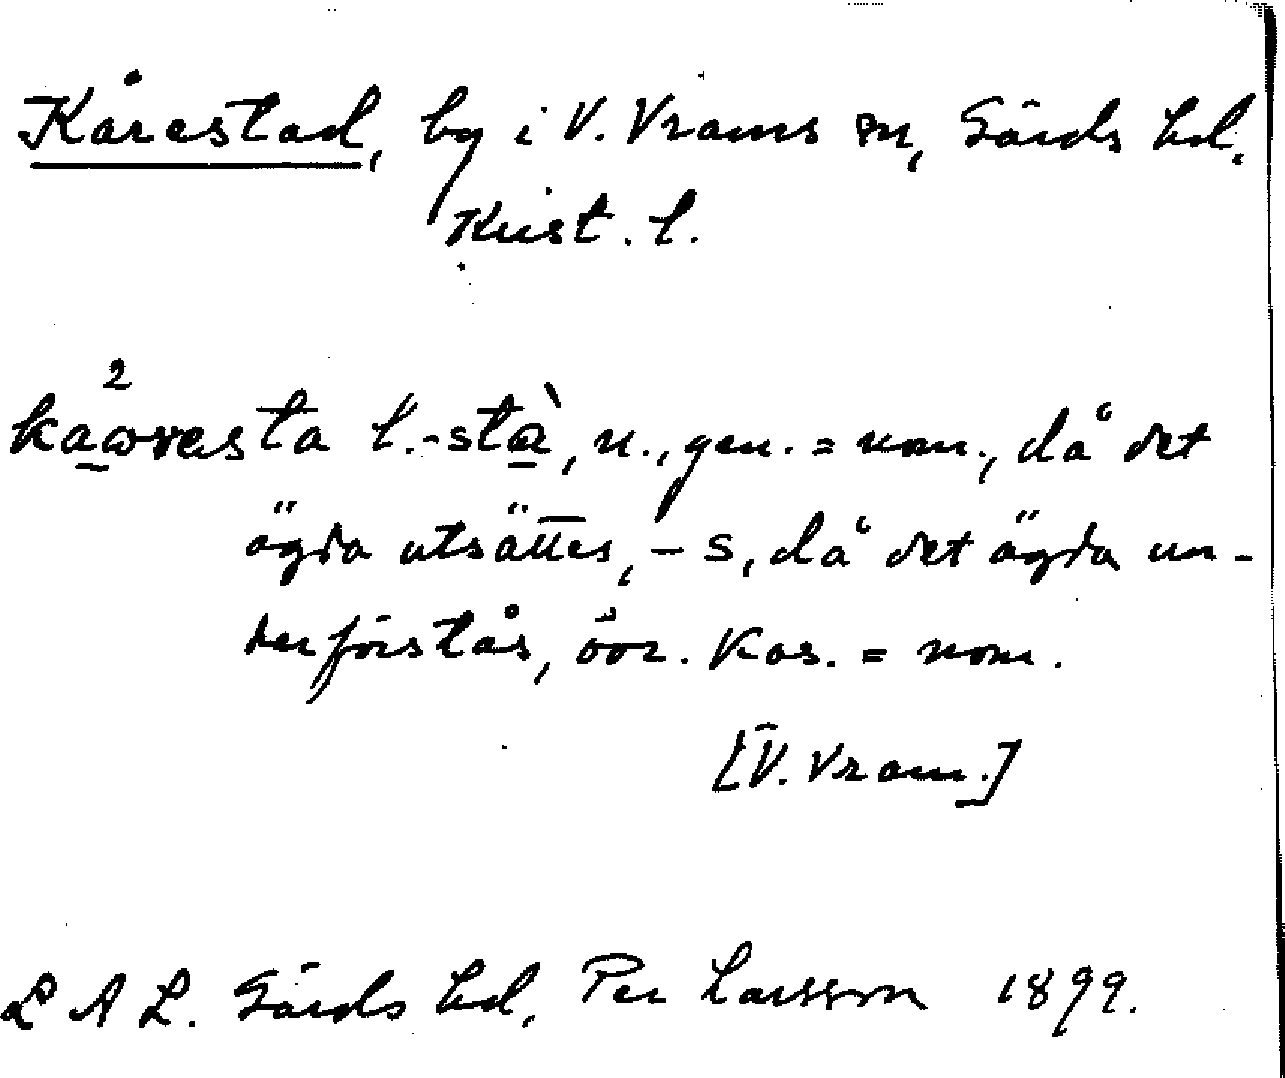 Kårestad, by i V. Vrams sn, Gärds hd,
Krist. l.
2
kaωresta l. -stà, n., gen. = nom., då det
ägda utsättes, - s, då det ägda un-
derförstås, övr. kas. = nom.
[V. Vram.]
L A L. Gärds hd, Per Larsson 1899.